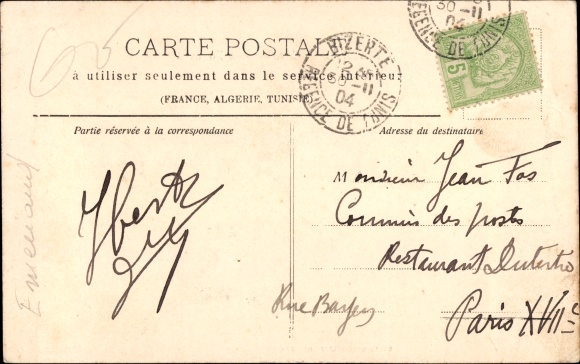 CARTE POSTALE
à utiliser seulement dans le service intérieur
(FRANCE, ALGERIE, TUNISIE)
BIZERTE
30-11
04
RÉGENCE DE TUNIS
30-11
04
RÉGENCE DE TUNIS
5
Partie réservée à la correspondance
Adresse du destinataire
Monsieur Jean Fos
Commis des posts
Restaurant Dutertre
Rue
Paris XVIIe